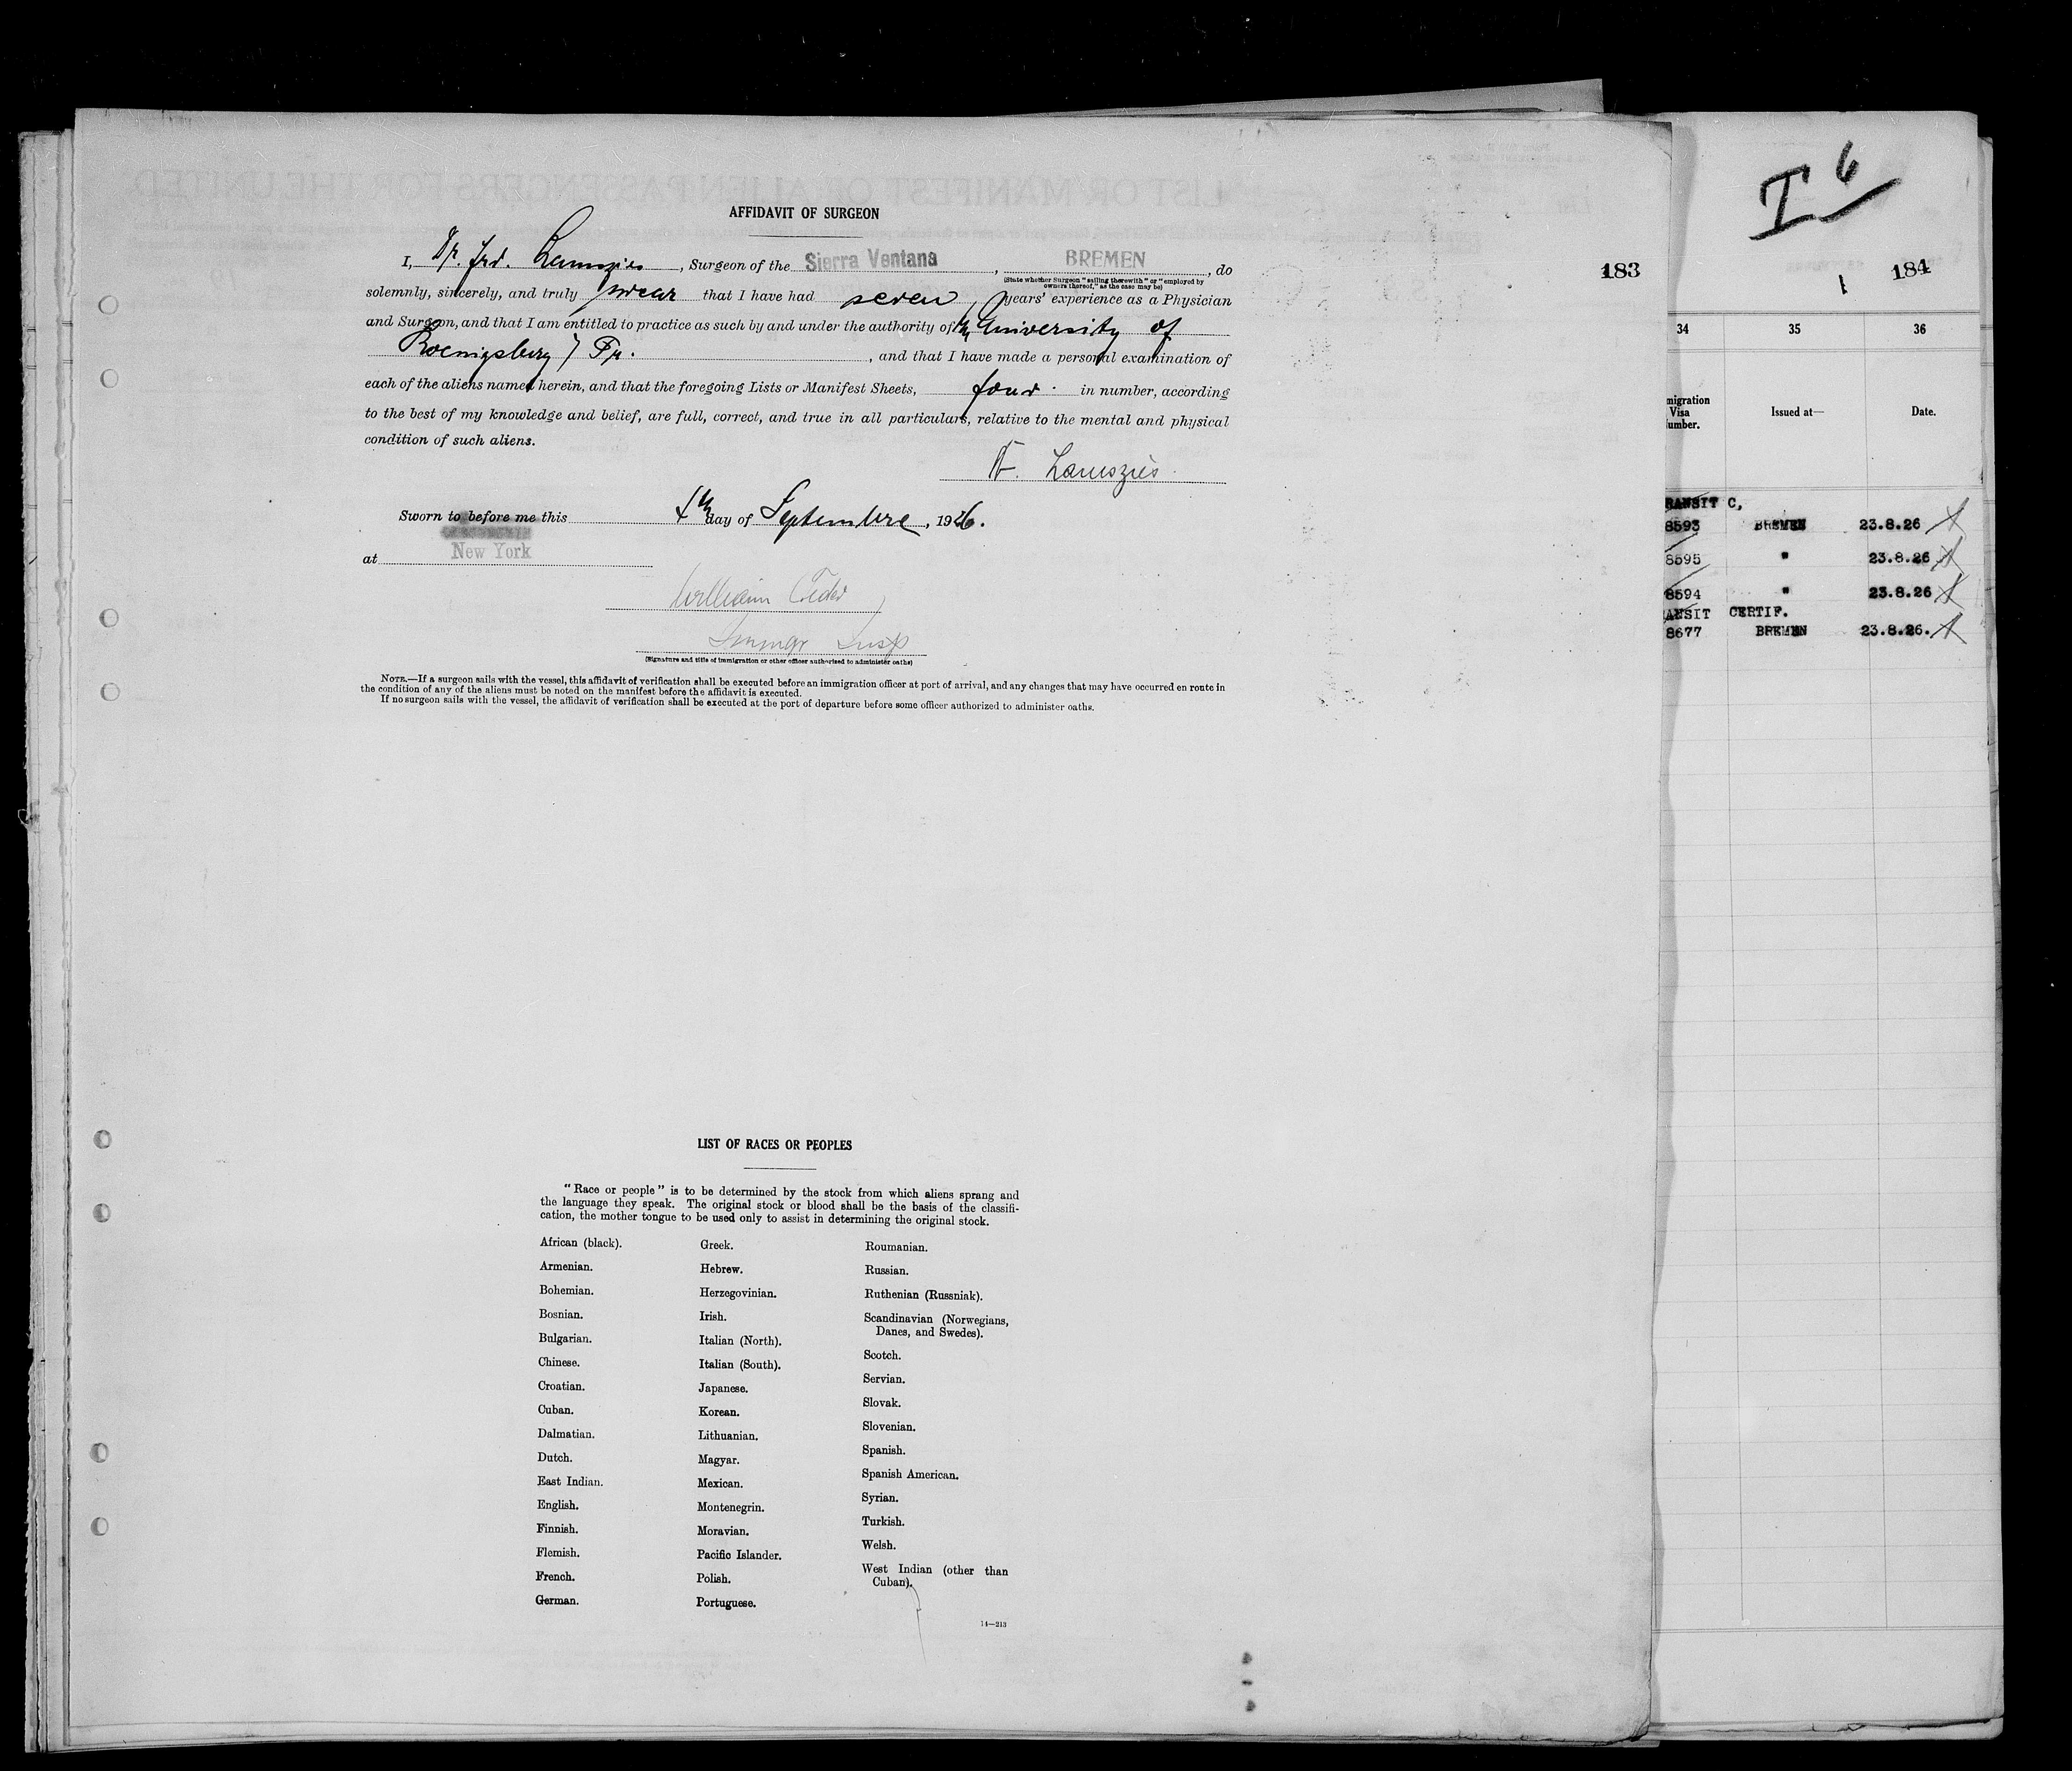 AFFIDAVIT OF SURGEON
I, Dr. Frd. , Surgeon of the Sierra Ventana, BREMEN, do
(State whether Surgeon "sailing therewith" or "employed by
owners thereof," as the case may be)
solemnly, sincerely, and truly swear that I have had seven years' experience as a Physician
and Surgeon, and that I am entitled to practice as such by and under the authority of the University of
Koenigsberg / Pr. , and that I have made a personal examination of
each of the aliens named herein, and that the foregoing Lists or Manifest Sheets, four in number, according
to the best of my knowledge and belief, are full, correct, and true in all particulars, relative to the mental and physical
condition of such aliens.
Sworn to before me this 4th day of Septembre, 1926.
at New York
William
Immgr Insp
(Signature and title of immigration or other officer authorized to administer oaths)
NOTE.—If a surgeon sails with the vessel, this affidavit of verification shall be executed before an immigration officer at port of arrival, and any changes that may have occurred en route in
the condition of any of the aliens must be noted on the manifest before the affidavit is executed.
If no surgeon sails with the vessel, the affidavit of verification shall be executed at the port of departure before some officer authorized to administer oaths.
LIST OF RACES OR PEOPLES
"Race or people" is to be determined by the stock from which aliens sprang and
the language they speak. The original stock or blood shall be the basis of the classifi-
cation, the mother tongue to be used only to assist in determining the original stock.
African (black).
Armenian.
Bohemian.
Bosnian.
Bulgarian.
Chinese.
Croatian.
Cuban.
Dalmatian.
Dutch.
East Indian.
English.
Finnish.
Flemish.
French.
German.
Greek.
Hebrew.
Herzegovinian.
Irish.
Italian (North).
Italian (South).
Japanese.
Korean.
Lithuanian.
Magyar.
Mexican.
Montenegrin.
Moravian.
Pacific Islander.
Polish.
Portuguese.
Roumanian.
Russian.
Ruthenian (Russniak).
Scandinavian (Norwegians,
Danes, and Swedes).
Scotch.
Servian.
Slovak.
Slovenian.
Spanish.
Spanish American.
Syrian.
Turkish.
Welsh.
West Indian (other than
Cuban).
14—213
183
I 6
1 184
34 35 36
migration
Visa
umber.
Issued at—
Date.
RANSIT C,
8593 BREMEN 23.8.26
8595 " 23.8.26
8594 " 23.8.26
ANSIT CERTIF.
8677 BREMEN 23.8.26.